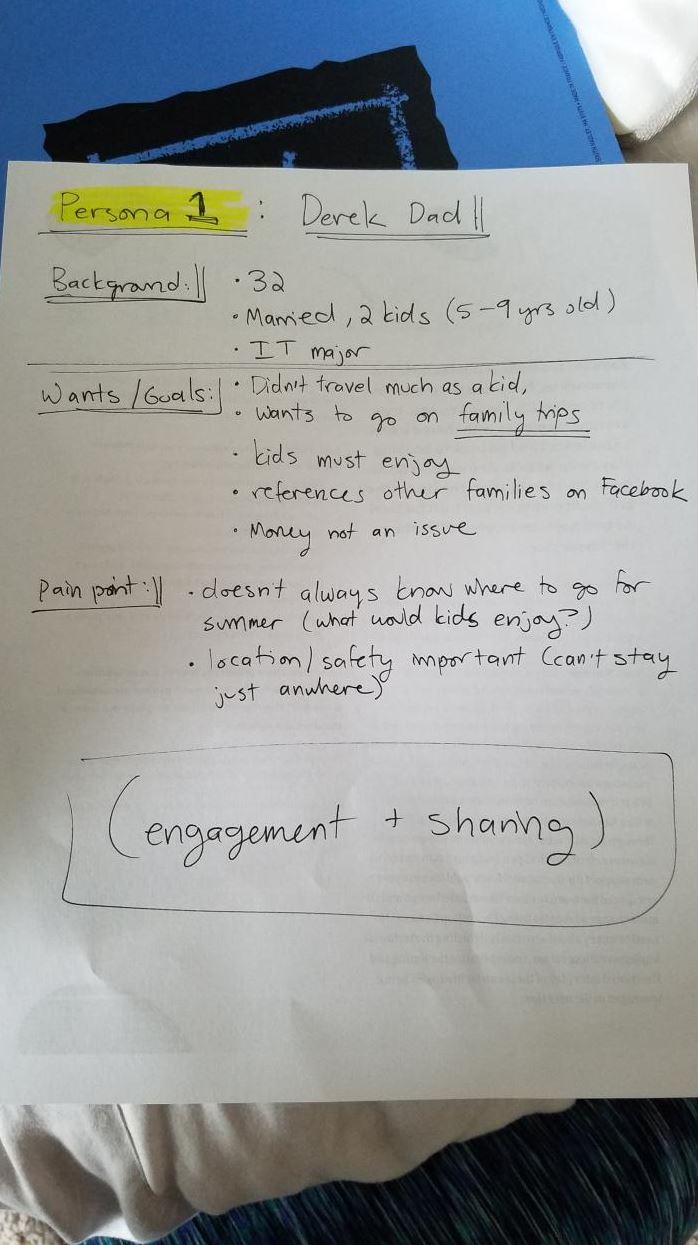 Persona 1 : Derek Dad
Background: • 32
• Married, 2 kids (5-9 yrs old)
• IT major
Wants/Goals: • Didn't travel much as a kid,
• wants to go on family trips
• kids must enjoy
• references other families on Facebook
• Money not an issue
Pain point: • doesn't always know where to go for
summer (what would kids enjoy?)
• location/safety important (can't stay
just anwhere)
(engagement + sharing)